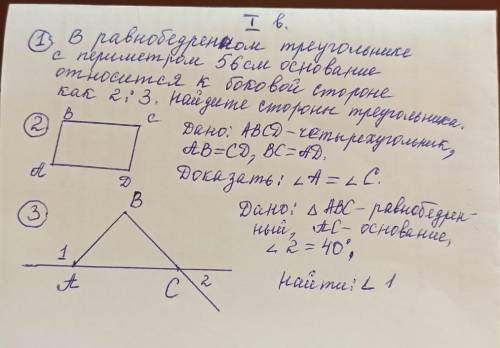 I в.
① В равнобедренном треугольнике
с периметром 56 см основание
относится к боковой стороне
как 2:3. Найдите стороны треугольника.
② B C
A D
Дано: ABCD - четырехугольник,
AB=CD, BC=AD.
Доказать: ∠A = ∠C.
③ B
1 A C 2
Дано: △ ABC - равнобедрен-
ный, AC - основание,
∠2 = 40°,
Найти: ∠ 1